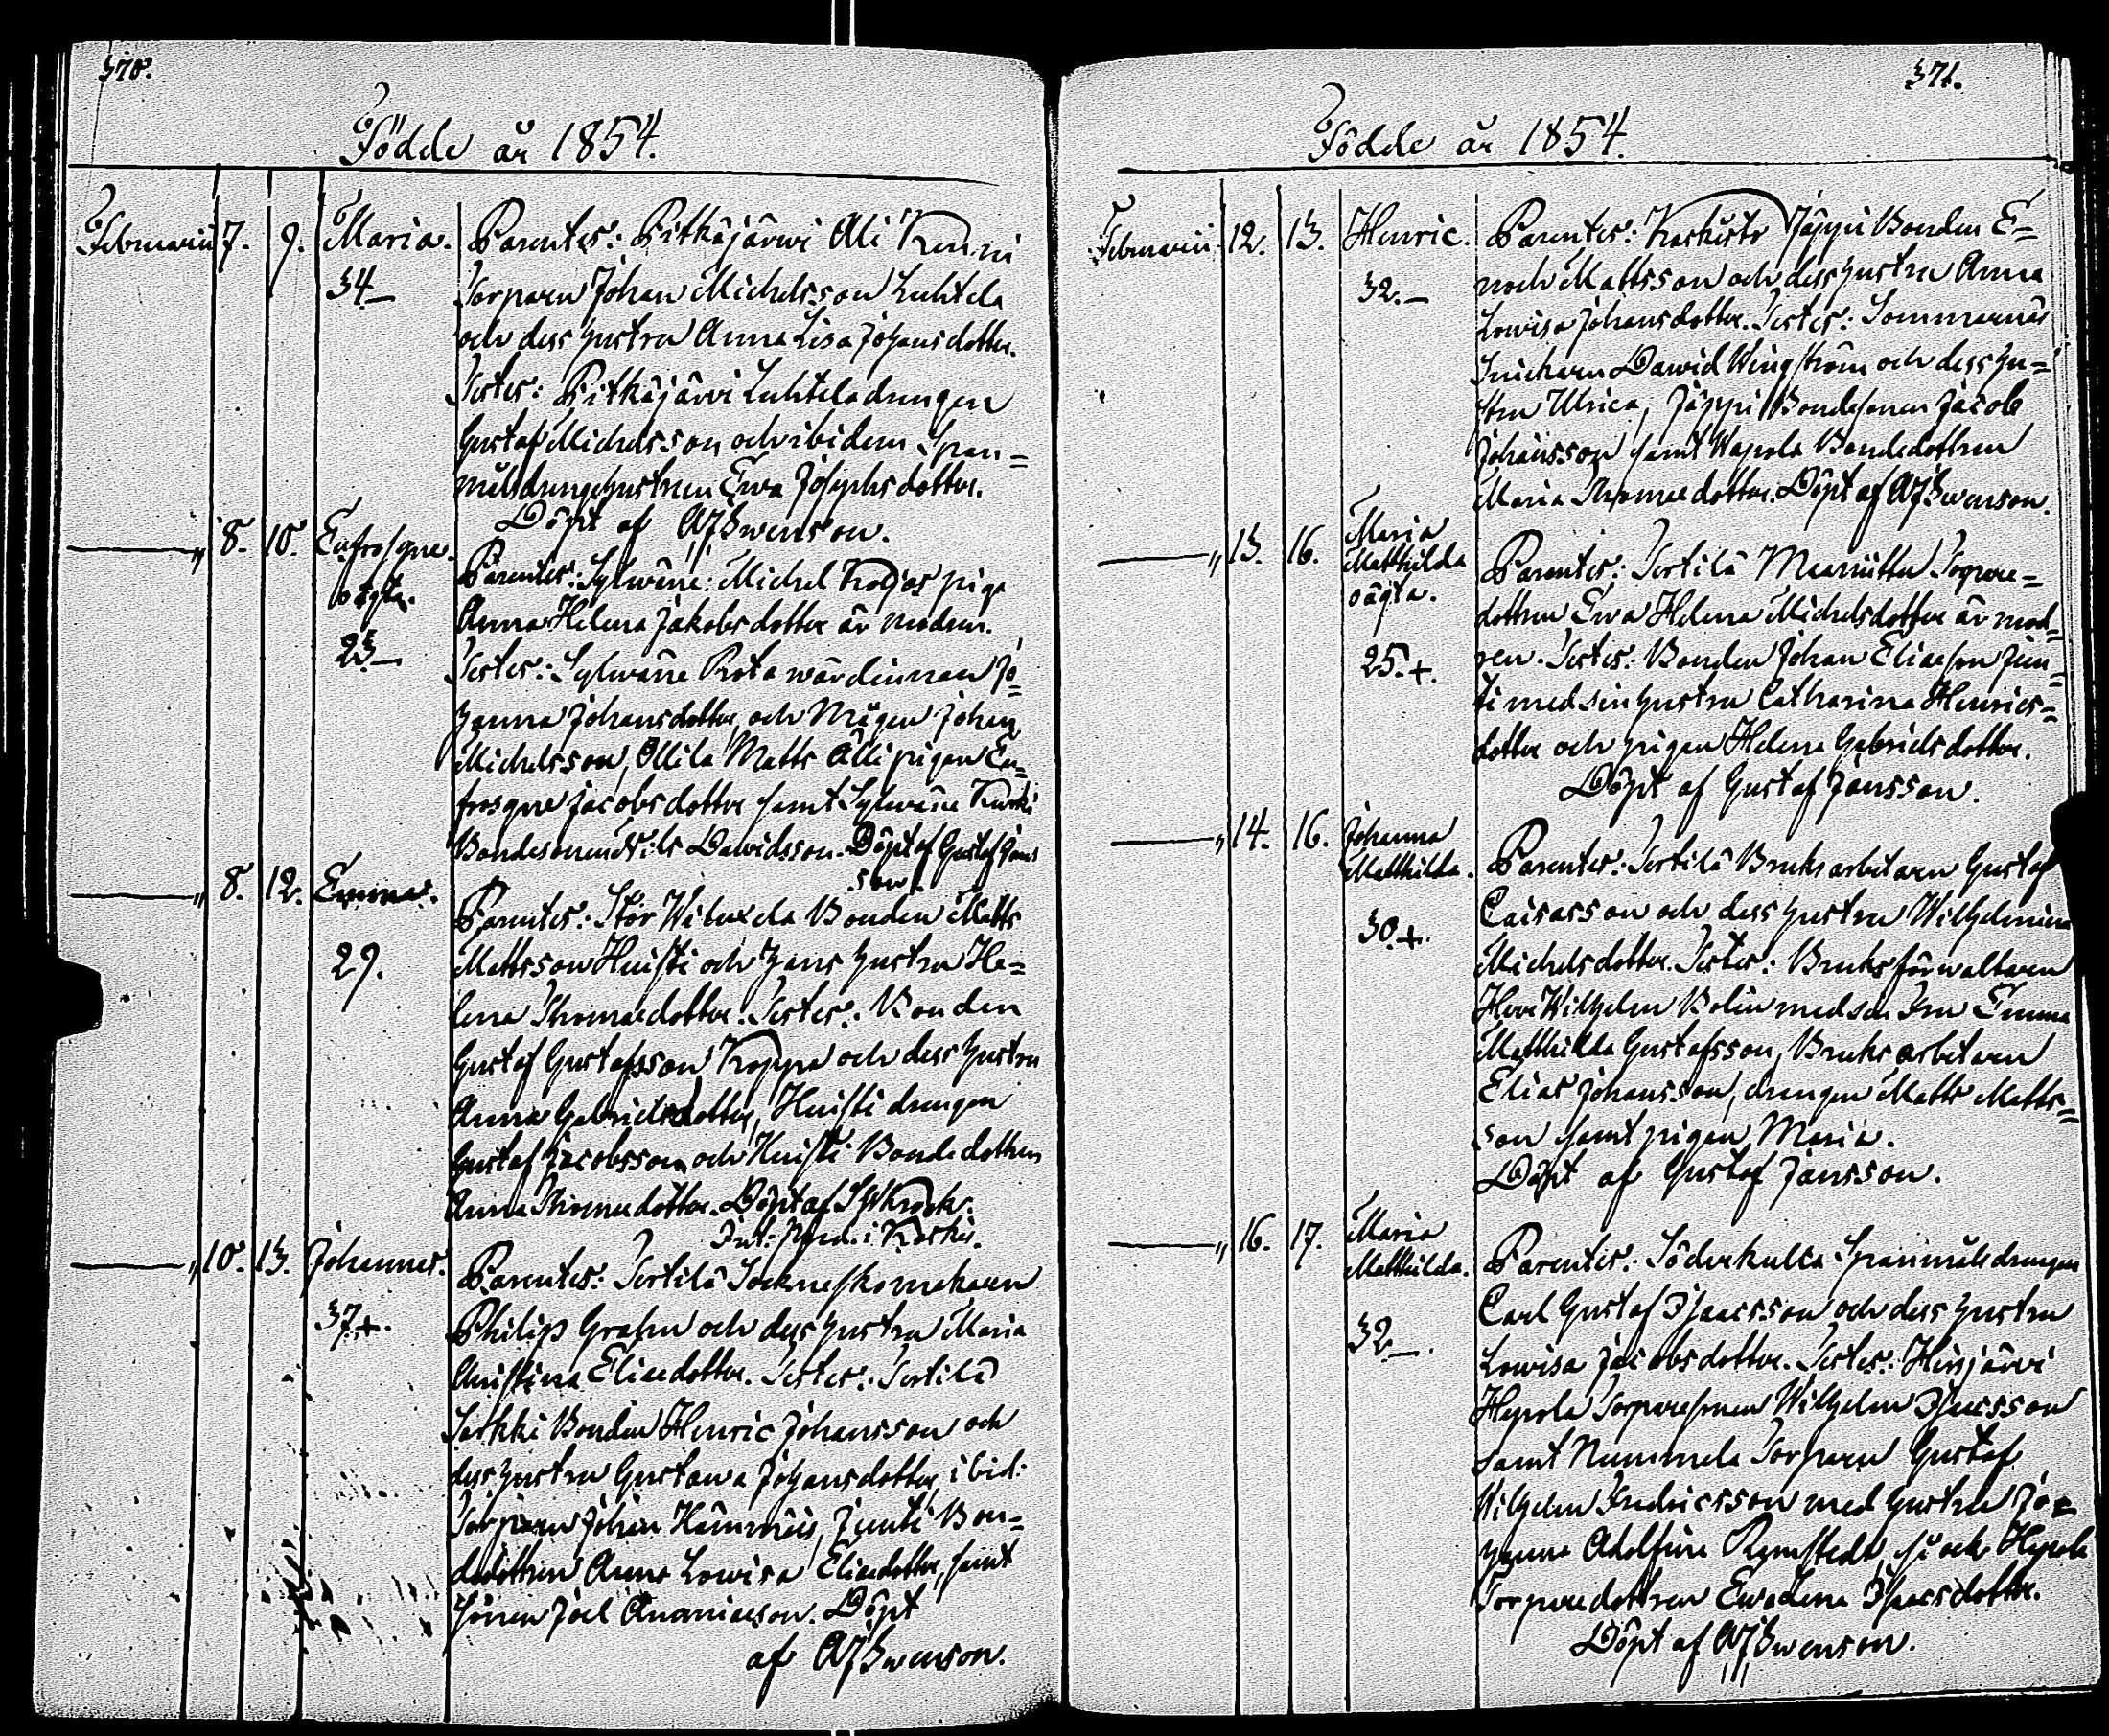 370.
Födde år 1854.
Februarii 7. 9. Maria. Parentes: Pitkäjärvi Ali Kenni
34– Torparen Johan Michelsson Luhtela
och dess hustru Anna Lisa Johansdotter.
Testes: Pitkäjärvi Luhtela drengen
Gustaf Michelsson och ibidem Span=
målsdrengehustrun Ewa Josephsdotter.
Döpt af AJSwenson.
—„ 8. 10. Eufrosyne. Parentes: Sylwäne: Michel pigan
oägta. Anna Helena Jakobsdotter är modren.
23– Testes: Sylwäne Rota wärdinnan Jo=
hanna Johansdotter, och Mågen Johan
Michelsson, Ollila Matts Alli pigan Eu=
frosyne Jacobsdotter samt Sylwäne Kurki
Bondesonen Nils Dawidsson. Döpt af Gustaf Jans
son.
—„ 8. 12. Emma. Parentes: Stor Bonden Matts
29. Mattsson Huisti och hans hustru He=
lena Thomaedotter. Testes: Bonden
Gustaf Gustafsson Koppa och dess hustru
Anna Gabrielsdotter, Huisti drengen
Gustaf Jacobsson och Huisti Bondedottren
Anna Thomaedotter. Döpt af
i Koskis.
—„ 10. 13. Johannes. Parentes: Tertilä Socknеskomakaren
37.+. Philip Grahn och dess hustru Maria
Christina Eliaedotter. Testes: Tertilä
Bonden Henric Johansson och
dess hustru Gustawa Johansdotter, ibid:
Torparen Johan, Junti Bon=
dedottren Anna Lowisa Eliaedotter, samt
Sonen Joel Ananiaeson. Döpt
af AJSwenson.
371.
Födde år 1854.
Februarii. 12. 13. Henric. Parentes: Koskisto Jäppi Bonden E=
32.– noch Mattsson och dess hustru Anna
Lowisa Johansdotter. Testes: Sommarnäs
Snickaren Dawid Wingström och dess hu=
stru Ulrica, Jäppi Bondesonen Jacob
Johansson samt Wapola Bondedottren
Maria Thomaedotter. Döpt af AJSwenson.
—„ 13. 16. Maria
Mathilda Parentes: Tertilä Torpare=
oägta. dottren Ewa Helena Michelsdotter är mod=
25.+. ren. Testes: Bonden Johan Eliaeson Jun=
ti med sin hustru Catharina Henrics=
dotter och pigan Helena Gabrielsdotter.
Döpt af Gustaf Jansson.
—„ 14. 16. Johanna
Mathilda. Parentes: Tertilä Bruksarbetaren Gustaf
30.+. Caisasson och dess hustru Wilhelmina
Michelsdotter. Testes: Bruksförwaltaren
Herr Wilhelm Bolin med sin Fru Emma
Mathilda Gustafsson, Bruksarbetaren
Elias Johansson, drengen Matts Matts=
son samt pigan Maria.
Döpt af Gustaf Jansson.
—„ 16. 17. Maria
Mathilda. Parentes: Söderkulla Spanmålsdrengen
32.–. Carl Gustaf Isaacsson och dess hustru
Lowisa Jacobsdotter. Testes: Hirsjärvi
Heprola Torparesonen Wilhelm Isacsson
samt Nummela Torparen Gustaf
Wilhelm Fredricsson med hustru Jo=
hanna Adolfina Rymstedt, så ock
Torparedottren Ewa Lena Isacsdotter.
Döpt af AJSwenson.